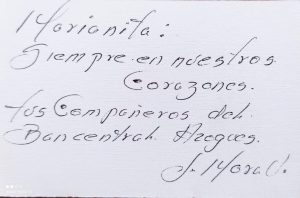 Marianita:
Siempre en nuestros
Corazones.
tus Compañeros del
Bancentral Azogues.
J. Mora V.